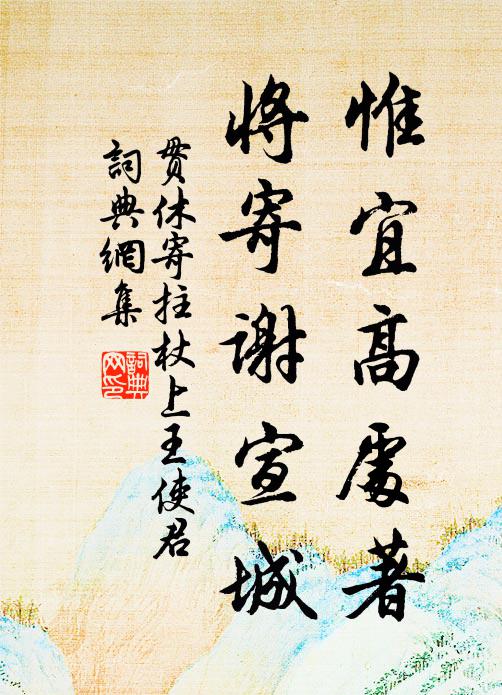 惟宜高處著
將寄謝宣城
貫休寄拄杖上王使君
詞典網集
詞典网印